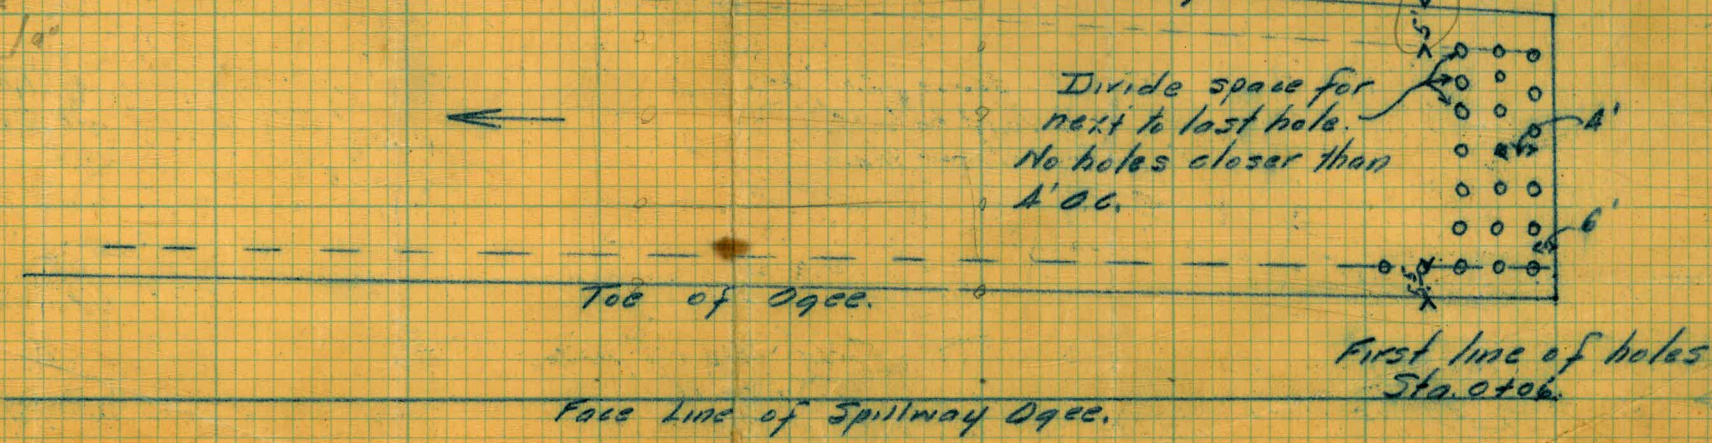 Divide space for
next to last hole.
No holes closer than
4' O.C.
4'
6'
5'
Toe of Ogee.
First line of holes
Sta. 0+06.
Face Line of Spillway Ogee.